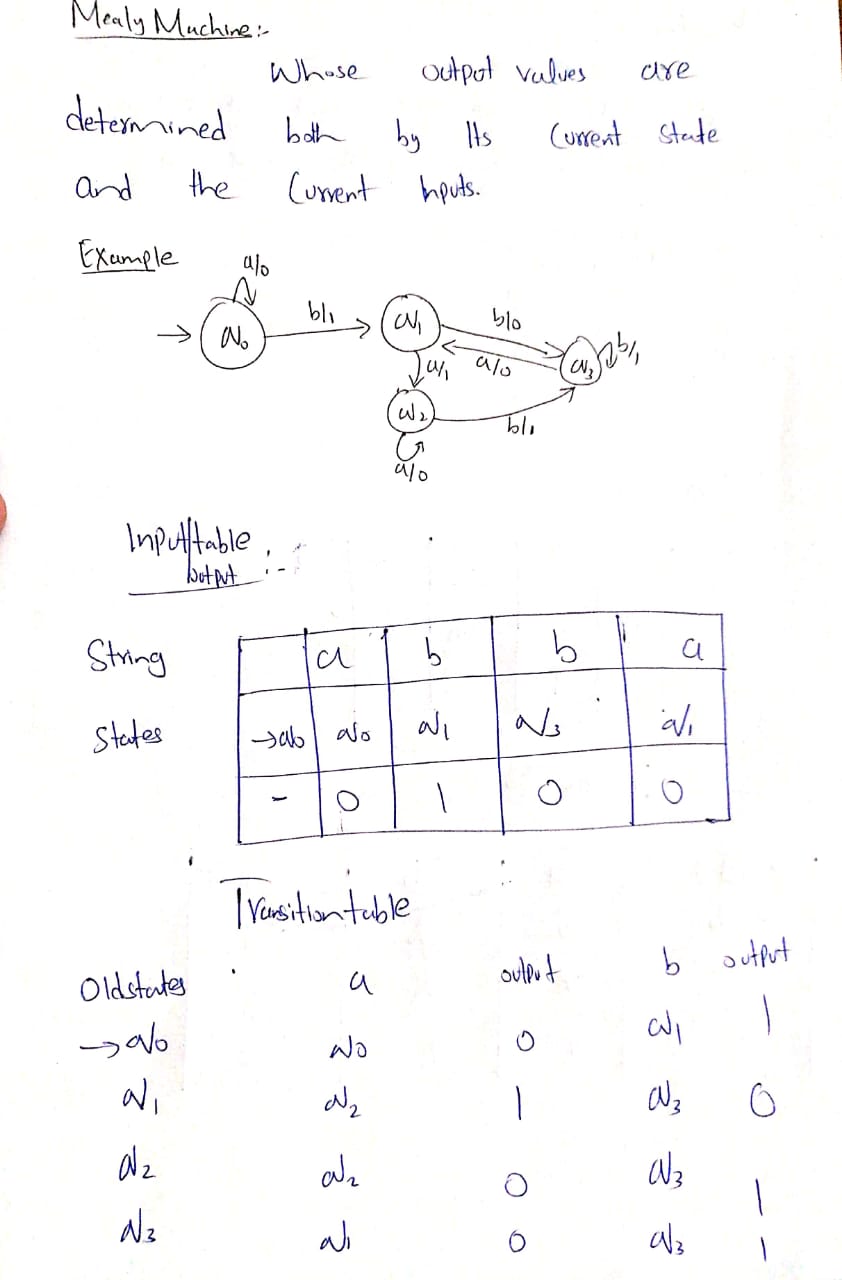 Mealy Machine:-
Whose output values are
determined both by Its Current State
and the Current Inputs.
Example
a/0
b/1
b/0
b/1
q0
q1
q3
a/1
a/0
q2
b/1
a/0
Input/table :-
output
String a b b a
States →q0 q0 q1 q3 q1
- 0 1 0 0
Transition table
Old states a output b output
→q0 q0 0 q1 1
q1 q2 1 q3 0
q2 q2 0 q3 1
q3 q1 0 q3 1